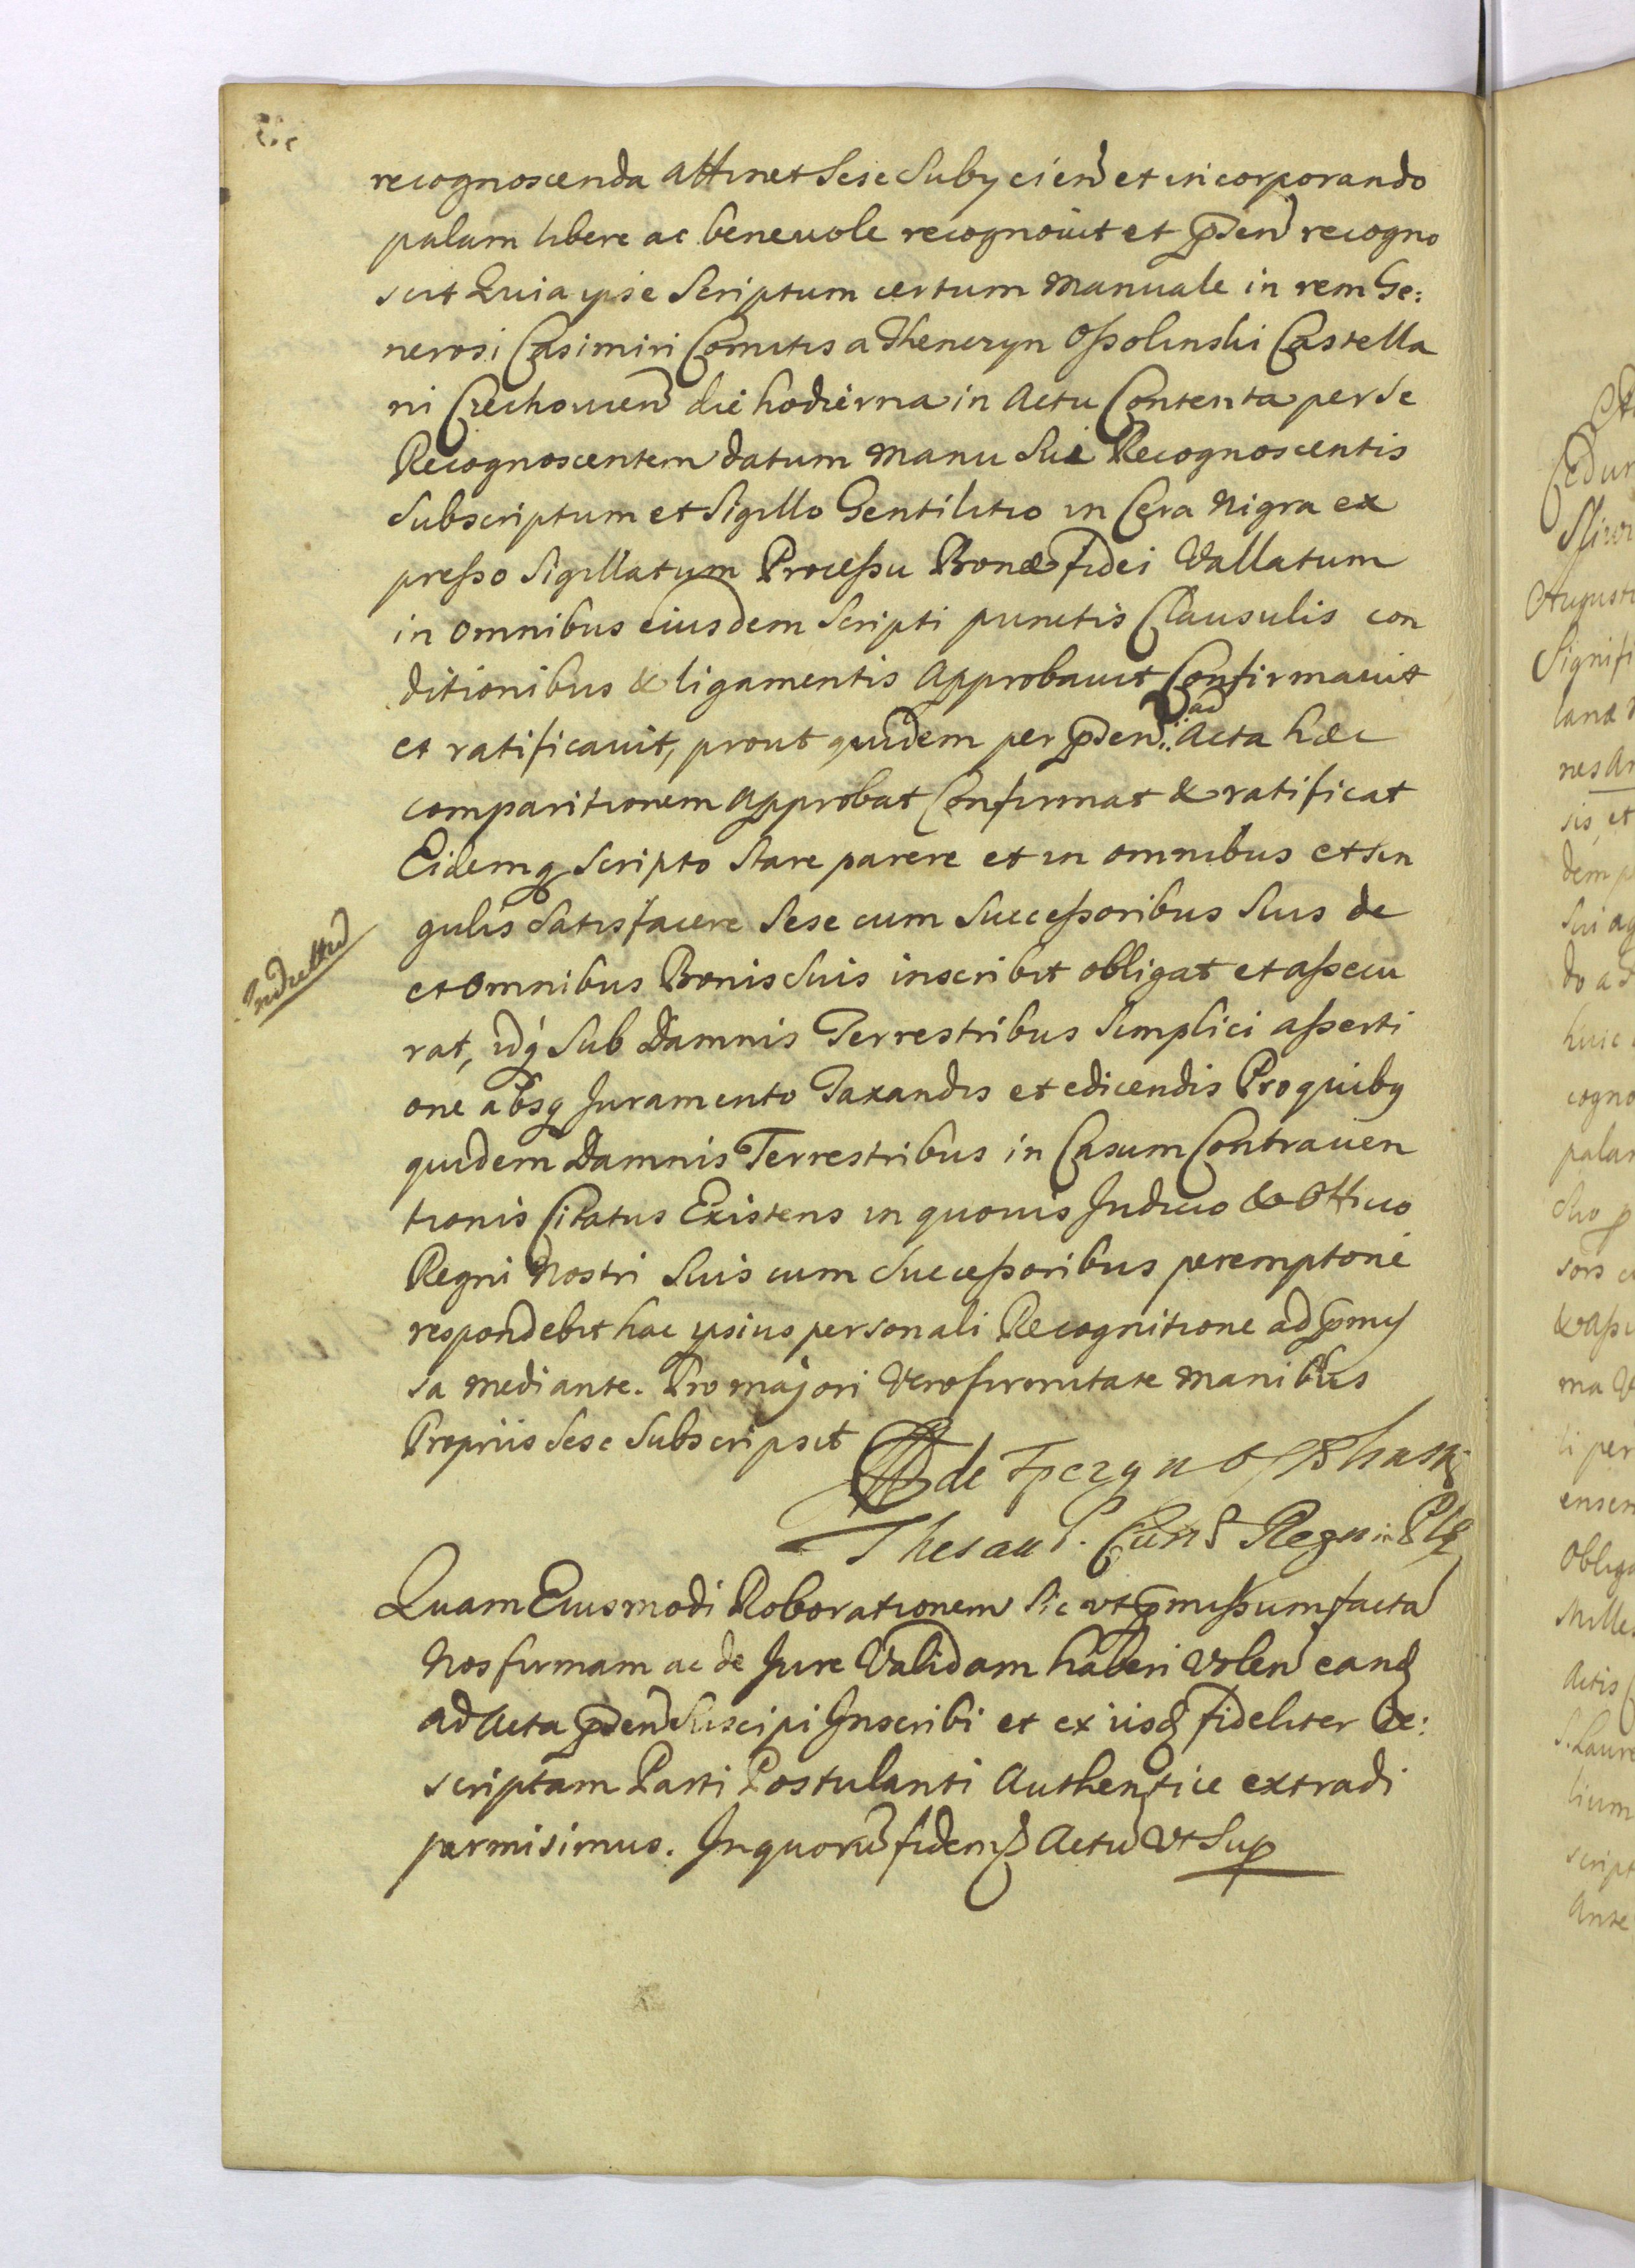 recognoscenda attinet Sese Subycien et incorporando
palam libere ac beneuole recognouit et pden recogno
scit Quia ipse Scriptum certum Manuale in rem Ge:
nerosi Casimiri Comitis a Thenczyn Ossolinski Castella
ni Czechouien die hodierna in Actu Contenta per se
Recognoscentem datum Manu Sui Recognoscentis
Subscriptum et Sigillo Gentilitio in Cera Nigra ex
presso Sigillatum Processu Bonæ fidei Vallatum
in omnibus eiusdem Scripti punctis Clausulis con
ditionibus & ligamentis Approbauit Confirmauit
et ratificauit, prout quidem per pden ad Acta hæc
comparitionem Approbat Confirmat & ratificat
Eidemq Scripto Stare parere et in omnibus et sin
gulis Satisfacere Sese cum Successoribus Suis de
et omnibus Bonis Suis inscribit obligat et assecu
rat, idq Sub Damnis Terrestribus Simplici asserti
one absq Juramento Taxandis et edicendis Pro quiby
quidem Damnis Terrestribus in Casum Contrauen
tionis Citatus Existens in quouis Judicio & Officio
Regni Nostri Suis cum Successoribus peremptorie
respondebit hac ipsius personali Recognitione ad pmis
sa mediante. Pro majori Vero firmitate Manibus
Propriis Sese Subscripsit
de
Thesau. Regni
Quam Eiusmodi Roborationem Sic ut pmissum facta
Nos firmam ac de Jure Validam haberi Volen eand
ad Acta pden Suscipi Inscribi et ex iisd fideliter De:
scriptam Parti Postulanti Authentice extradi
permisimus. In quoru fidem Actu Ut Sup